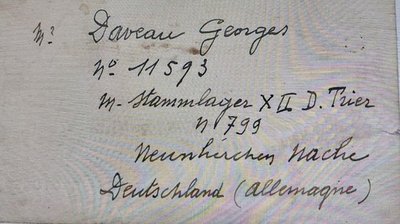 Mr Daveau Georges
No 11593
M- Stammlager XII D. Trier
N 799
Neunkirchen Nache
Deutschland (Allemagne)